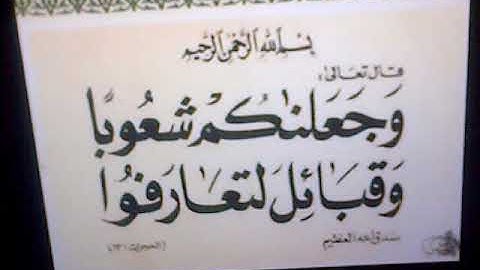 بسم الله الرحمن الرحيم
قال تعالى:
وَجَعَلْنَاكُمْ شُعُوبًا
وَقَبَائِلَ لِتَعَارَفُوا
صدق الله العظيم
(الحجرات: ١٣)